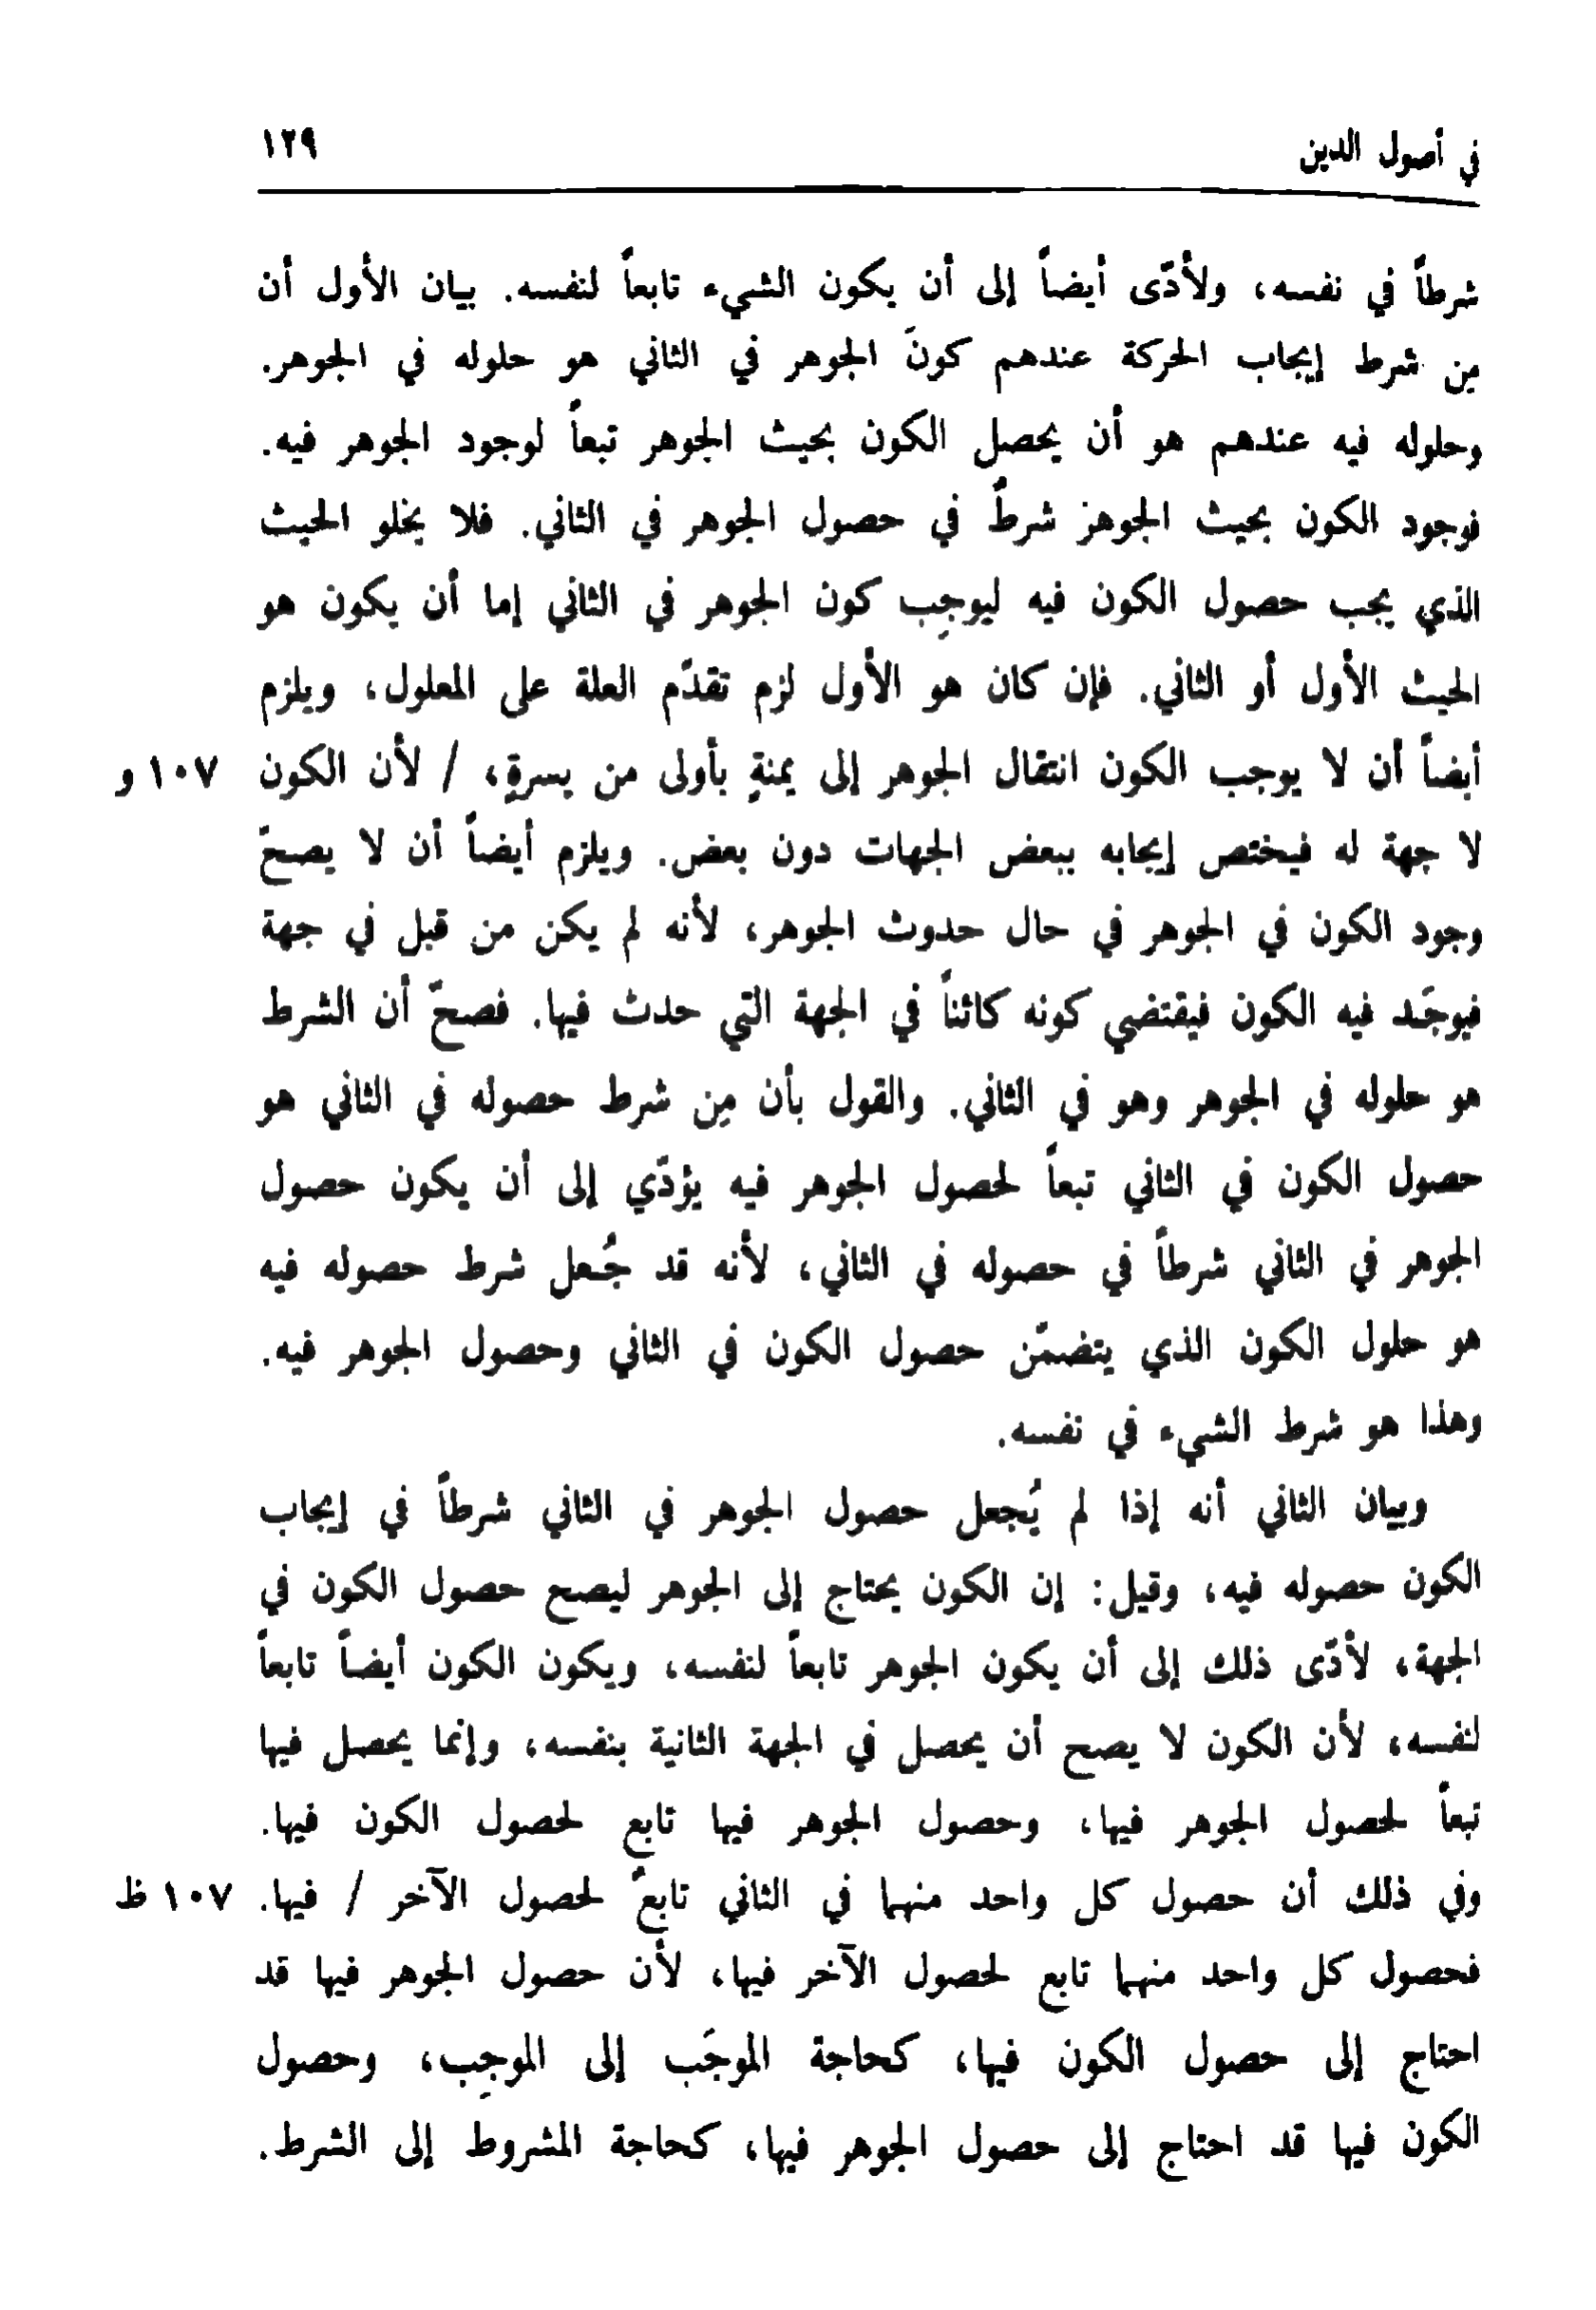 في أصول الدين ١٢٩
شرطاً في نفسه، ولأدّى أيضاً إلى أن يكون الشيء تابعاً لنفسه. بيان الأول أن
مِن شرط إيجاب الحركة عندهم كونَ الجوهر في الثاني هو حلوله في الجوهر.
وحلوله فيه عندهم هو أن يحصل الكون بحيث الجوهر تبعاً لوجود الجوهر فيه.
فوجود الكون بحيث الجوهز شرطٌ في حصول الجوهر في الثاني. فلا يخلو الحيث
الذي يجب حصول الكون فيه ليوجِب كون الجوهر في الثاني إما أن يكون هو
الحيث الأول أو الثاني. فإن كان هو الأول لزم تقدّم العلة على المعلول، ويلزم
أيضاً أن لا يوجب الكون انتقال الجوهر إلى يمنةٍ بأولى من يسرةٍ، / لأن الكون ١٠٧ و
لا جهة له فيختص إيجابه ببعض الجهات دون بعض. ويلزم أيضاً أن لا يصحّ
وجود الكون في الجوهر في حال حدوث الجوهر، لأنه لم يكن من قبل في جهة
فيوجَد فيه الكون فيقتضي كونه كائناً في الجهة التي حدث فيها. فصحّ أن الشرط
هو حلوله في الجوهر وهو في الثاني. والقول بأن مِن شرط حصوله في الثاني هو
حصول الكون في الثاني تبعاً لحصول الجوهر فيه يؤدّي إلى أن يكون حصول
الجوهر في الثاني شرطاً في حصوله في الثاني، لأنه قد جُعل شرط حصوله فيه
هو حلول الكون الذي يتضمّن حصول الكون في الثاني وحصول الجوهر فيه.
وهذا هو شرط الشيء في نفسه.
وبيان الثاني أنه إذا لم يُجعل حصول الجوهر في الثاني شرطاً في إيجاب
الكون حصوله فيه، وقيل: إن الكون يحتاج إلى الجوهر ليصح حصول الكون في
الجهة، لأدّى ذلك إلى أن يكون الجوهر تابعاً لنفسه، ويكون الكون أيضاً تابعاً
لنفسه، لأن الكون لا يصح أن يحصل في الجهة الثانية بنفسه، وإنما يحصل فيها
تبعاً لحصول الجوهر فيها، وحصول الجوهر فيها تابع لحصول الكون فيها.
وفي ذلك أن حصول كل واحد منهما في الثاني تابعٌ لحصول الآخر / فيها. ١٠٧ ظ
فحصول كل واحد منهما تابع لحصول الآخر فيها، لأن حصول الجوهر فيها قد
احتاج إلى حصول الكون فيها، كحاجة الموجَب إلى الموجِب، وحصول
الكون فيها قد احتاج إلى حصول الجوهر فيها، كحاجة المشروط إلى الشرط.